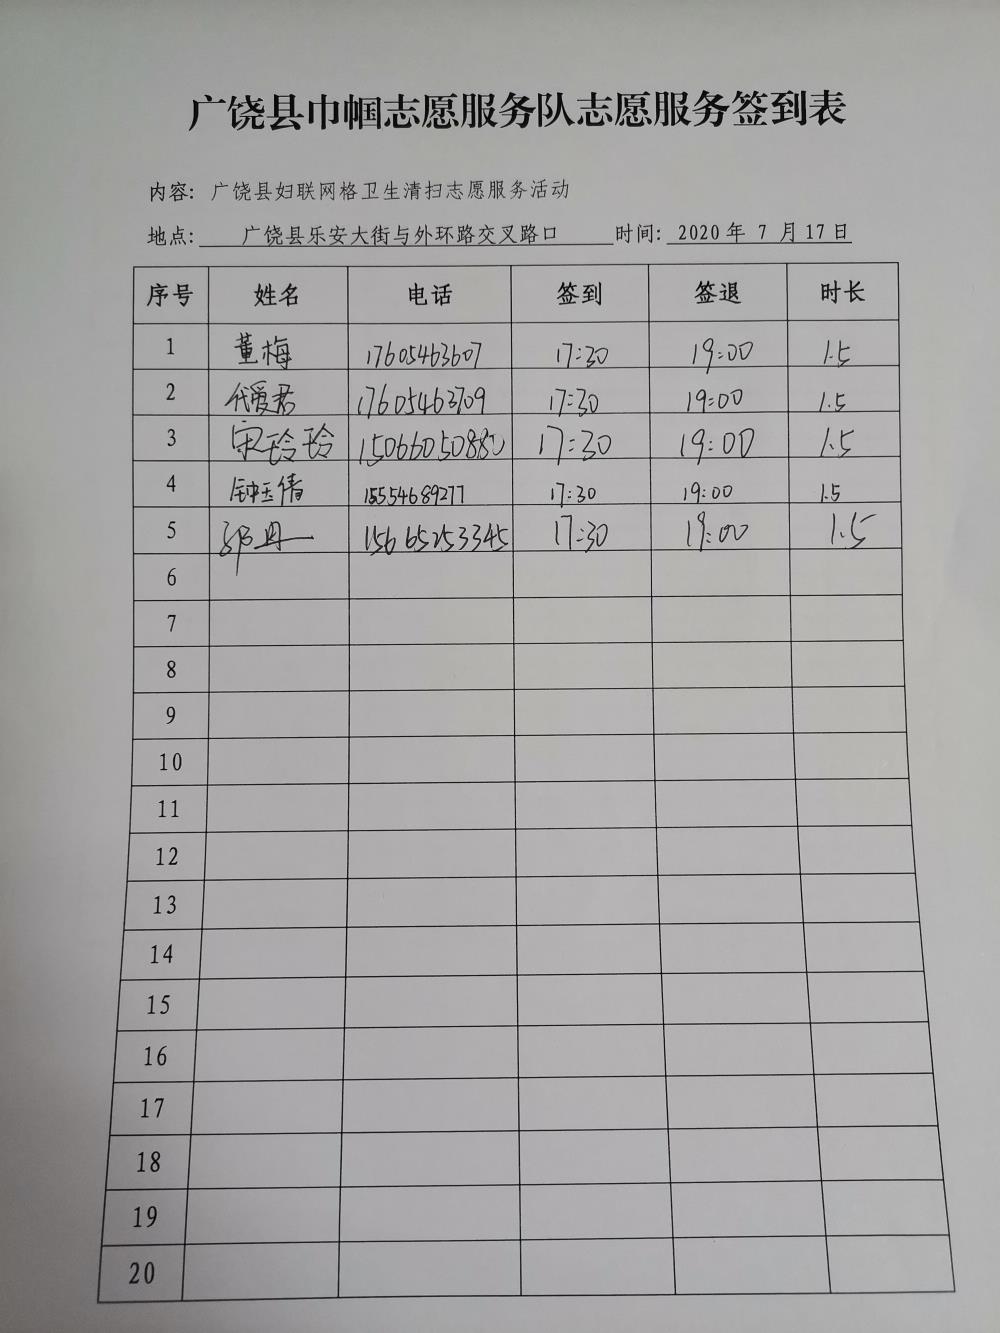 广饶县巾帼志愿服务队志愿服务签到表
内容: 广饶县妇联网格卫生清扫志愿服务活动
地点: 广饶县乐安大街与外环路交叉路口 时间: 2020 年 7 月 17 日
序号 姓名 电话 签到 签退 时长
1 董梅 17605463607 17:30 19:00 1.5
2 代爱君 17605463709 17:30 19:00 1.5
3 宋玲玲 15066050880 17:30 19:00 1.5
4 钟玉倩 15554689277 17:30 19:00 1.5
5 15665253345 17:30 19:00 1.5
6
7
8
9
10
11
12
13
14
15
16
17
18
19
20